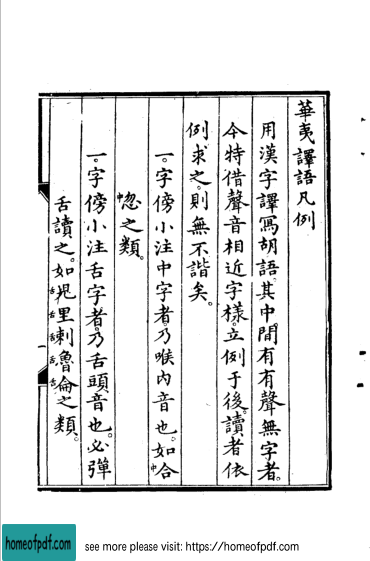 華夷譯語凡例
用漢字譯寫胡語。其中間有有聲無字者。
今特借聲音相近字樣。立例于後。讀者依
例求之。則無不諧矣。
一。字傍小注中字者。乃喉內音也。如中合
中忽之類。
一。字傍小注舌字者。乃舌頭音也。必彈
舌讀之。如舌兒舌里舌剌舌魯舌侖之類。
homeofpdf.com
see more please visit: https://homeofpdf.com